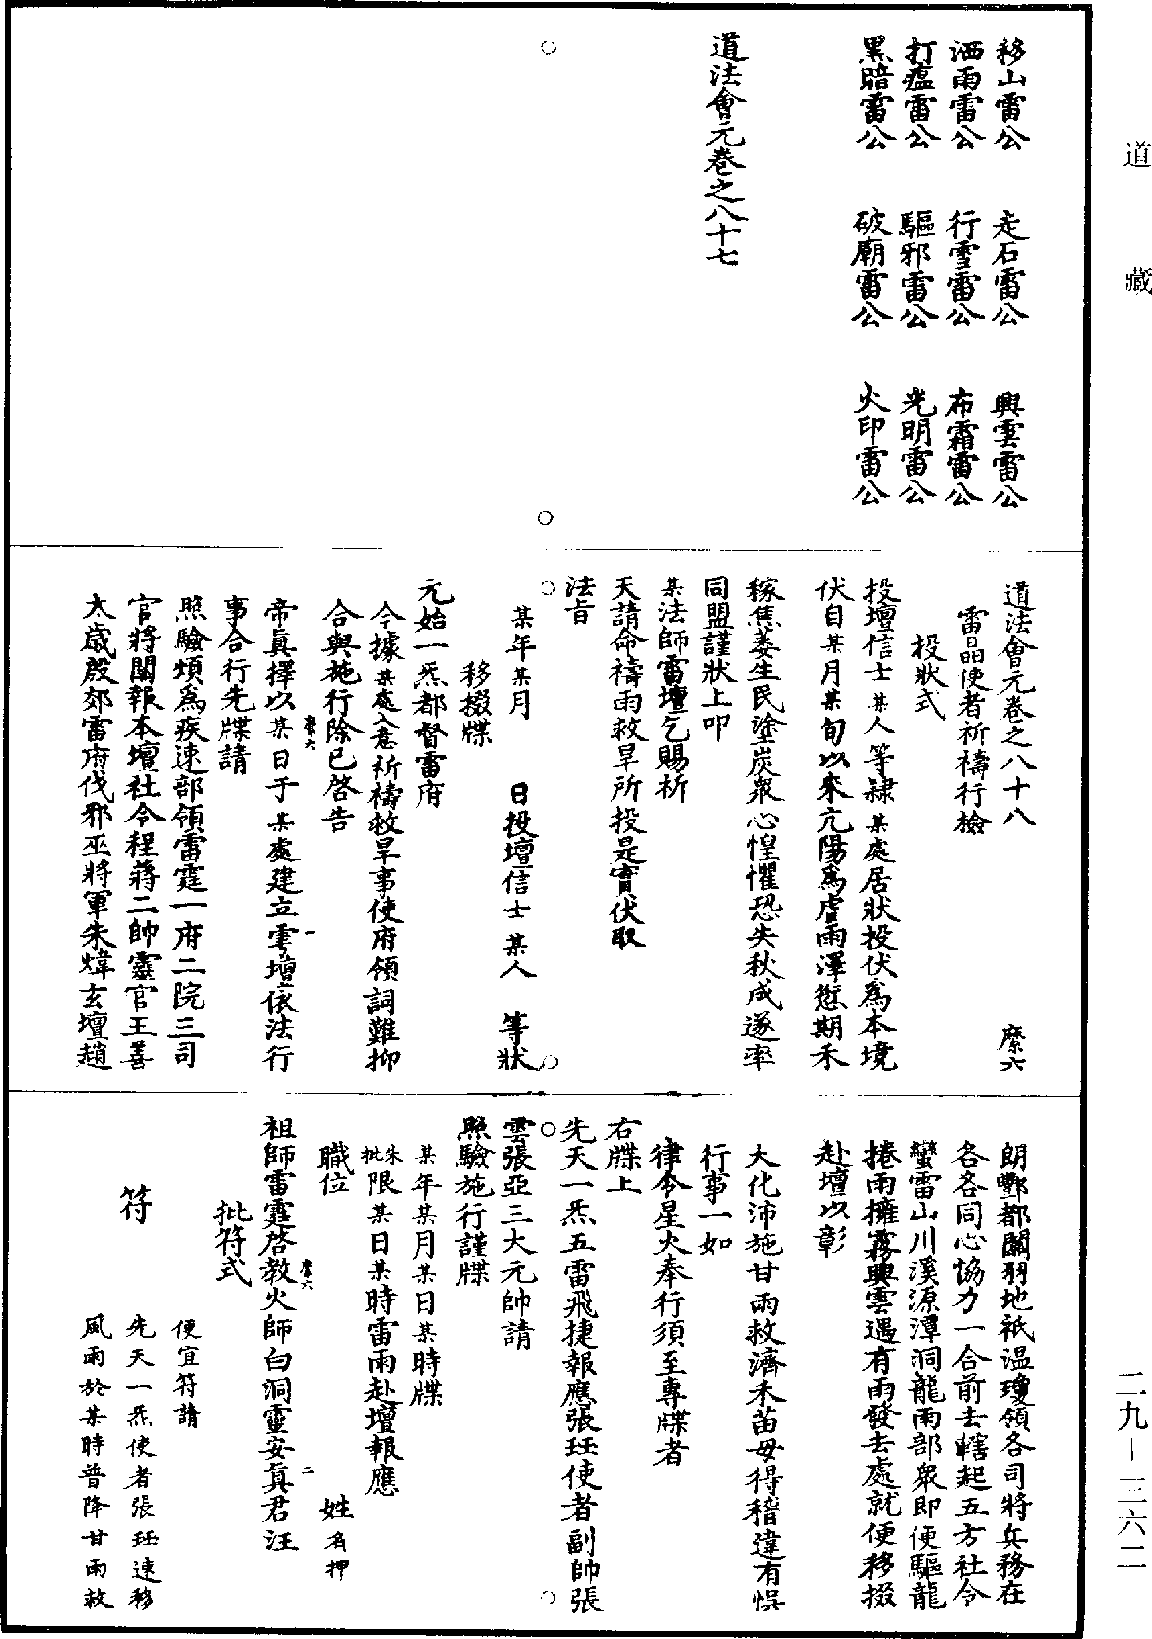 道　藏
移山雷公　走石雷公　興雲雷公
洒雨雷公　行雪雷公　布霜雷公
打瘟雷公　驅邪雷公　光明雷公
黑暗雷公　破廟雷公　火印雷公
道法會元卷之八十七
道法會元卷之八十八　縻六
雷晶使者祈禱行檢
投狀式
投壇信士某人等隷某處居狀投伏爲本境
伏自某月某旬以來亢陽爲虐雨澤愆期禾
稼焦萎生民塗炭衆心惶懼恐失秋成遂率
同盟謹狀上叩
某法師雷壇乞賜祈
天請命禱雨救旱所投是實伏取
法旨
某年某月　日投壇信士某人　等狀
移掇牒
元始一炁都督雷府
今據某處入意祈禱救旱事使府領詞難抑
合與施行除已啓告
帝眞擇以某日于某處建立雩壇依法行
縻六　一
事合行先牒請
照驗煩爲疾速部領雷霆一府二院三司
官將關報本壇社令程蔣二帥靈官王善
太歲殷郊雷府伐邪巫將軍朱煒玄壇趙
朗酆都關羽地祇溫瓊領各司將兵務在
各各同心協力一合前去轄起五方社令
蠻雷山川溪源潭洞龍雨部衆即便驅龍
捲雨擁霧興雲遇有雨發去處就便移掇
赴壇以彰
大化沛施甘雨救濟禾苗毋得稽違有悞
行事一如
律令星火奉行須至專牒者
右牒上
先天一炁五雷飛捷報應張珏使者副帥張
雲張亞三大元帥請
照驗施行謹牒
某年某月某日某時牒
朱批限某日某時雷雨赴壇報應
職位　姓名押
祖師雷霆啓教火師白洞靈安眞君汪
縻六　二
批符式
便宜符請
符　先天一炁使者張珏速移
風雨於某時普降甘雨救
二九－三六二